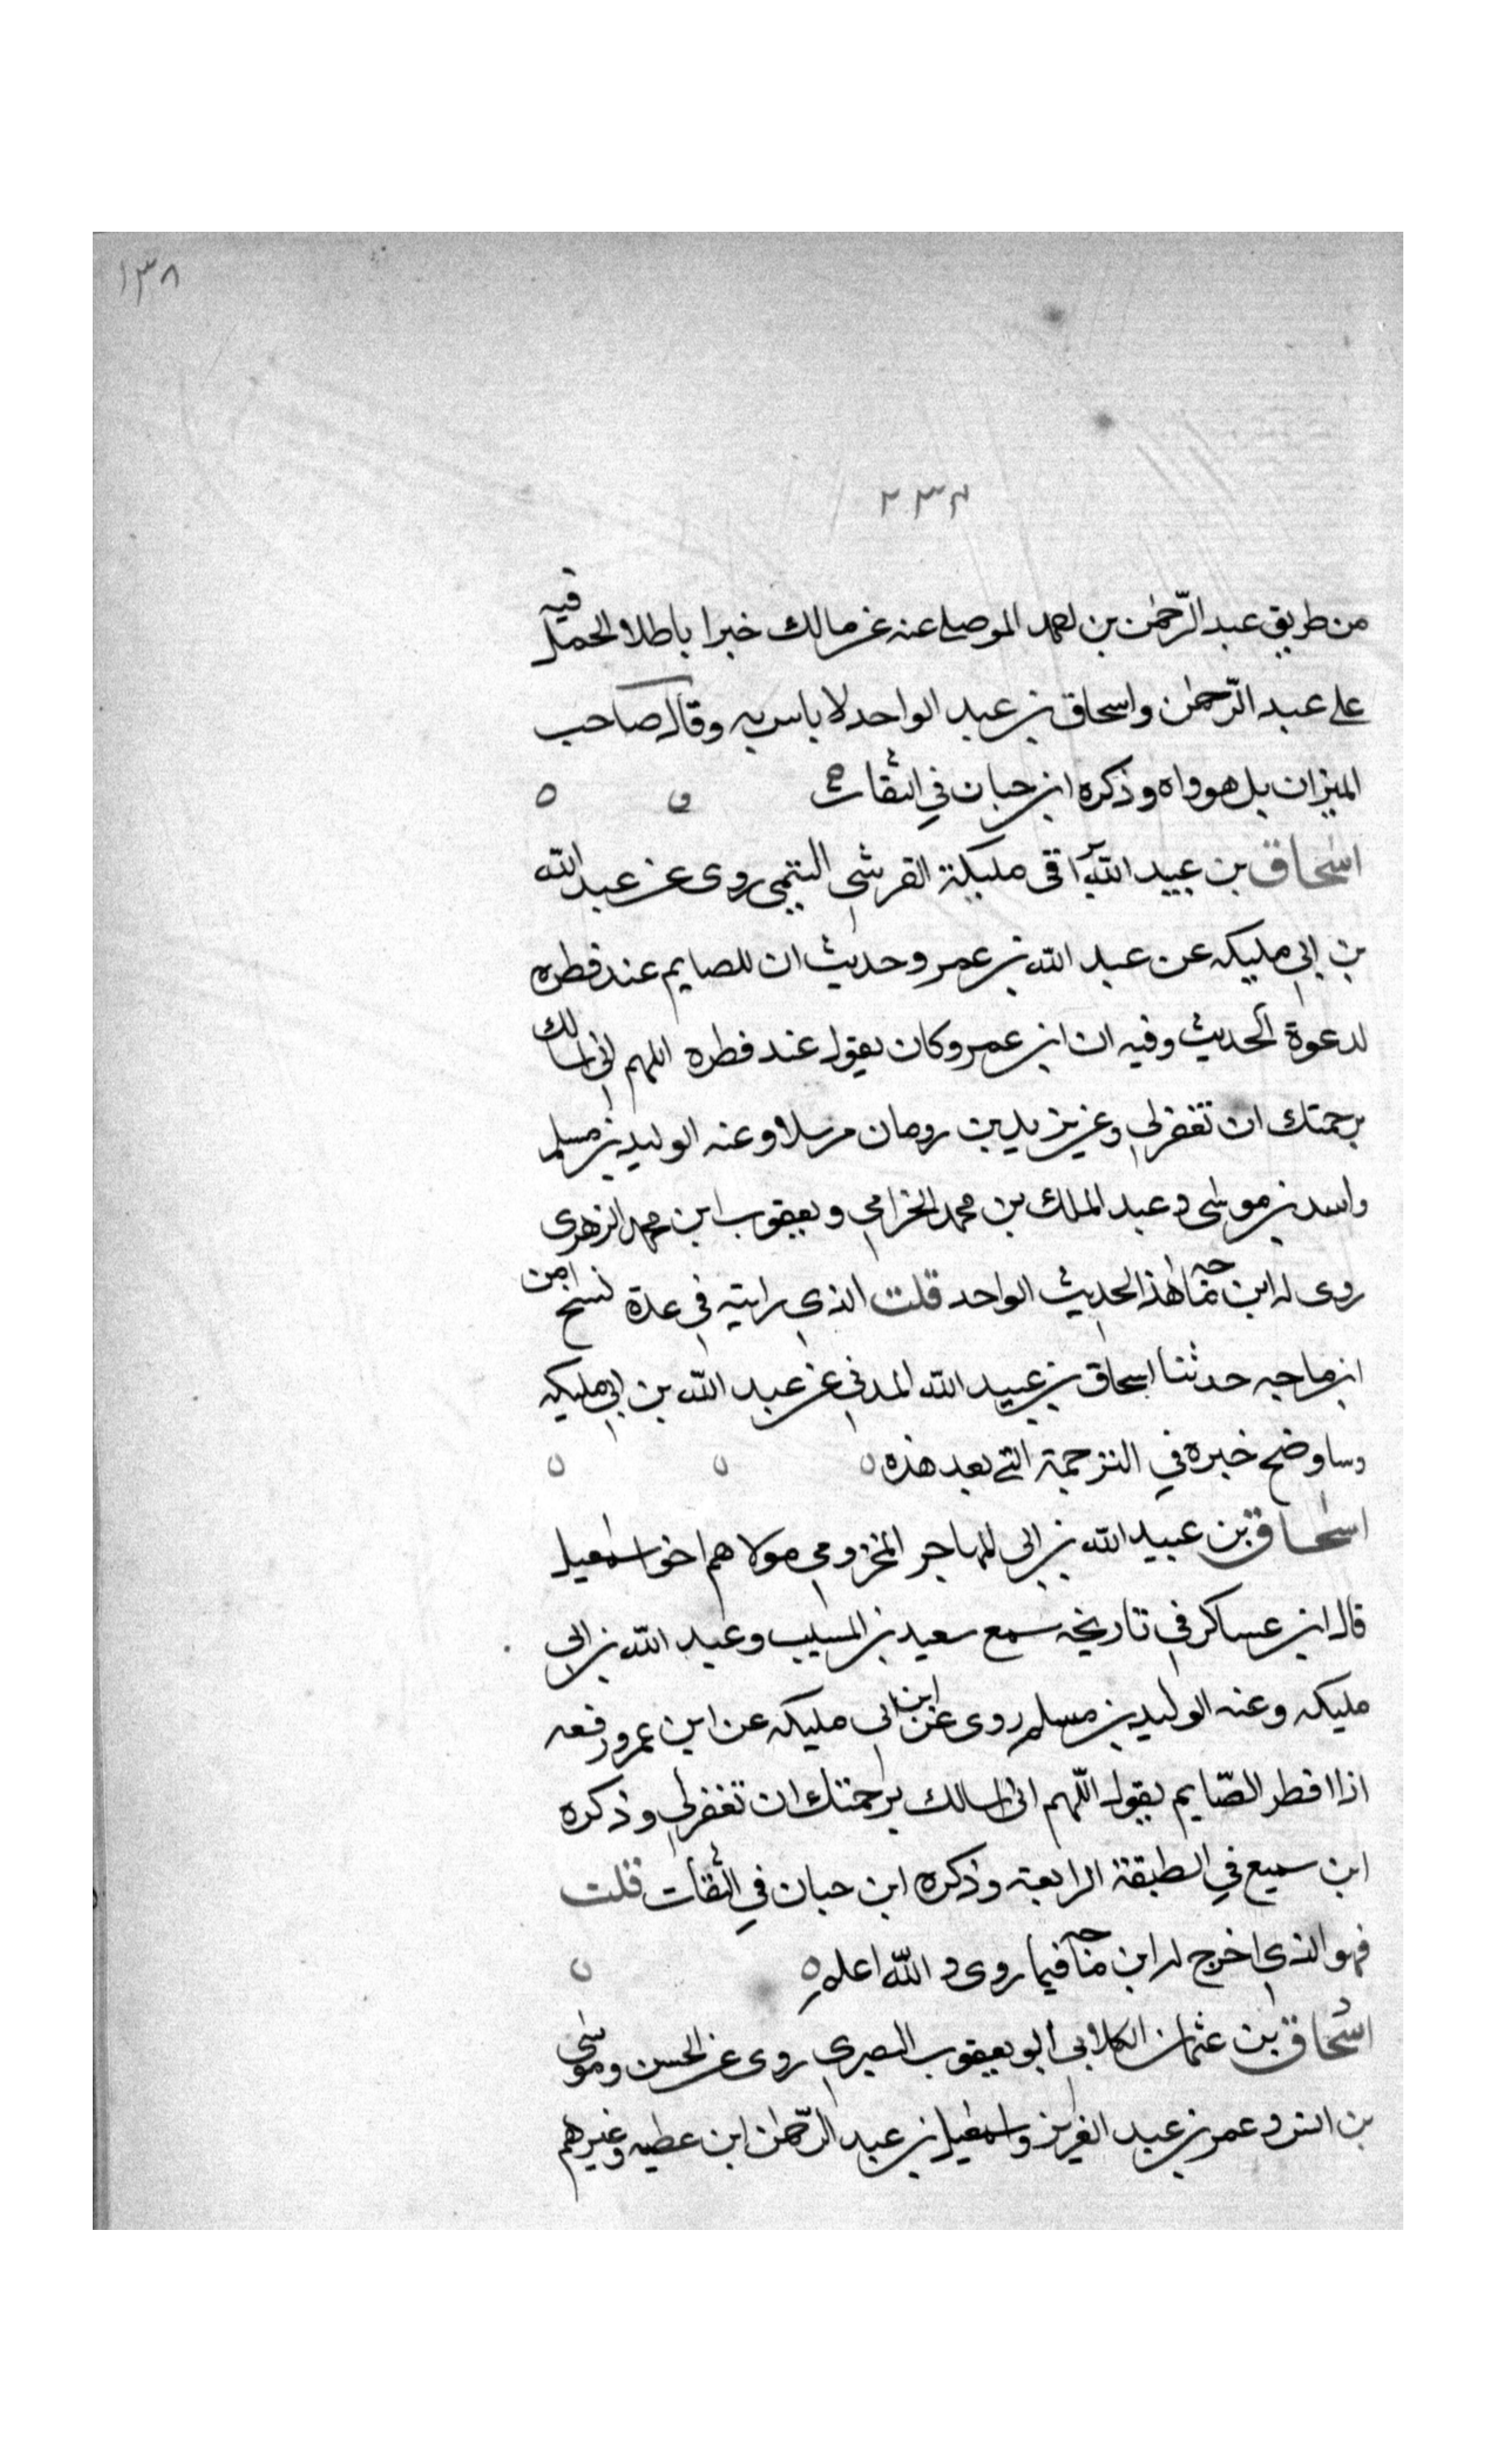 ١٣٨
٢٣٤
من طريق عبد الرّحمٰن بن احمد الموصلي عنه عن مالك خبرا باطلا الحمل فيه
على عبد الرّحمٰن واسحاق بن عبد الواحد لا باس به وقال صاحب
الميزان بل هو واه وذكره ابن حبان في الثقات
اسحاق بن عبيد الله بن ابي مليكة القرشي التيمي روى عن عبد الله
بن ابي مليكه عن عبد الله بن عمرو حديث ان للصايم عند فطره
لدعوة الحديث وفيه ان ابن عمرو كان يقول عند فطره اللهم اني اسالك
برحمتك ان تغفر لي وعن يزيد بن رومان مرسلا وعنه الوليد بن مسلم
واسد بن موسى وعبد الملك بن محمد الحزامي ويعقوب ابن محمد الزهري
روى له ابن ماجه هذا الحديث الواحد قلت الذي رايته في عدة نسخ من
ابن ماجه حدثنا اسحاق بن عبيد الله المدني عن عبد الله بن ابي مليكه
وساوضح خبره في الترجمة التي بعد هذه
اسحاق بن عبيد الله بن ابي المهاجر المخزومي مولاهم اخو اسمعيل
قال ابن عساكر في تاريخه سمع سعيد بن المسيب وعبد الله بن ابي
مليكه وعنه الوليد بن مسلم روى عن ابن ابي مليكه عن ابن عمرو رفعه
اذا افطر الصّايم يقول اللّهم اني اسالك برحمتك ان تغفر لي وذكره
ابن سميع في الطبقة الرابعة وذكره ابن حبان في الثقات قلت
فهو الذي اخرج له ابن ماجه فيما روى والله اعلم
اسحاق بن عثمان الكلابي ابو يعقوب البصري روى عن الحسن وموسى
بن انس وعمر بن عبد العزيز واسمعيل بن عبد الرّحمٰن ابن عطيه وغيرهم